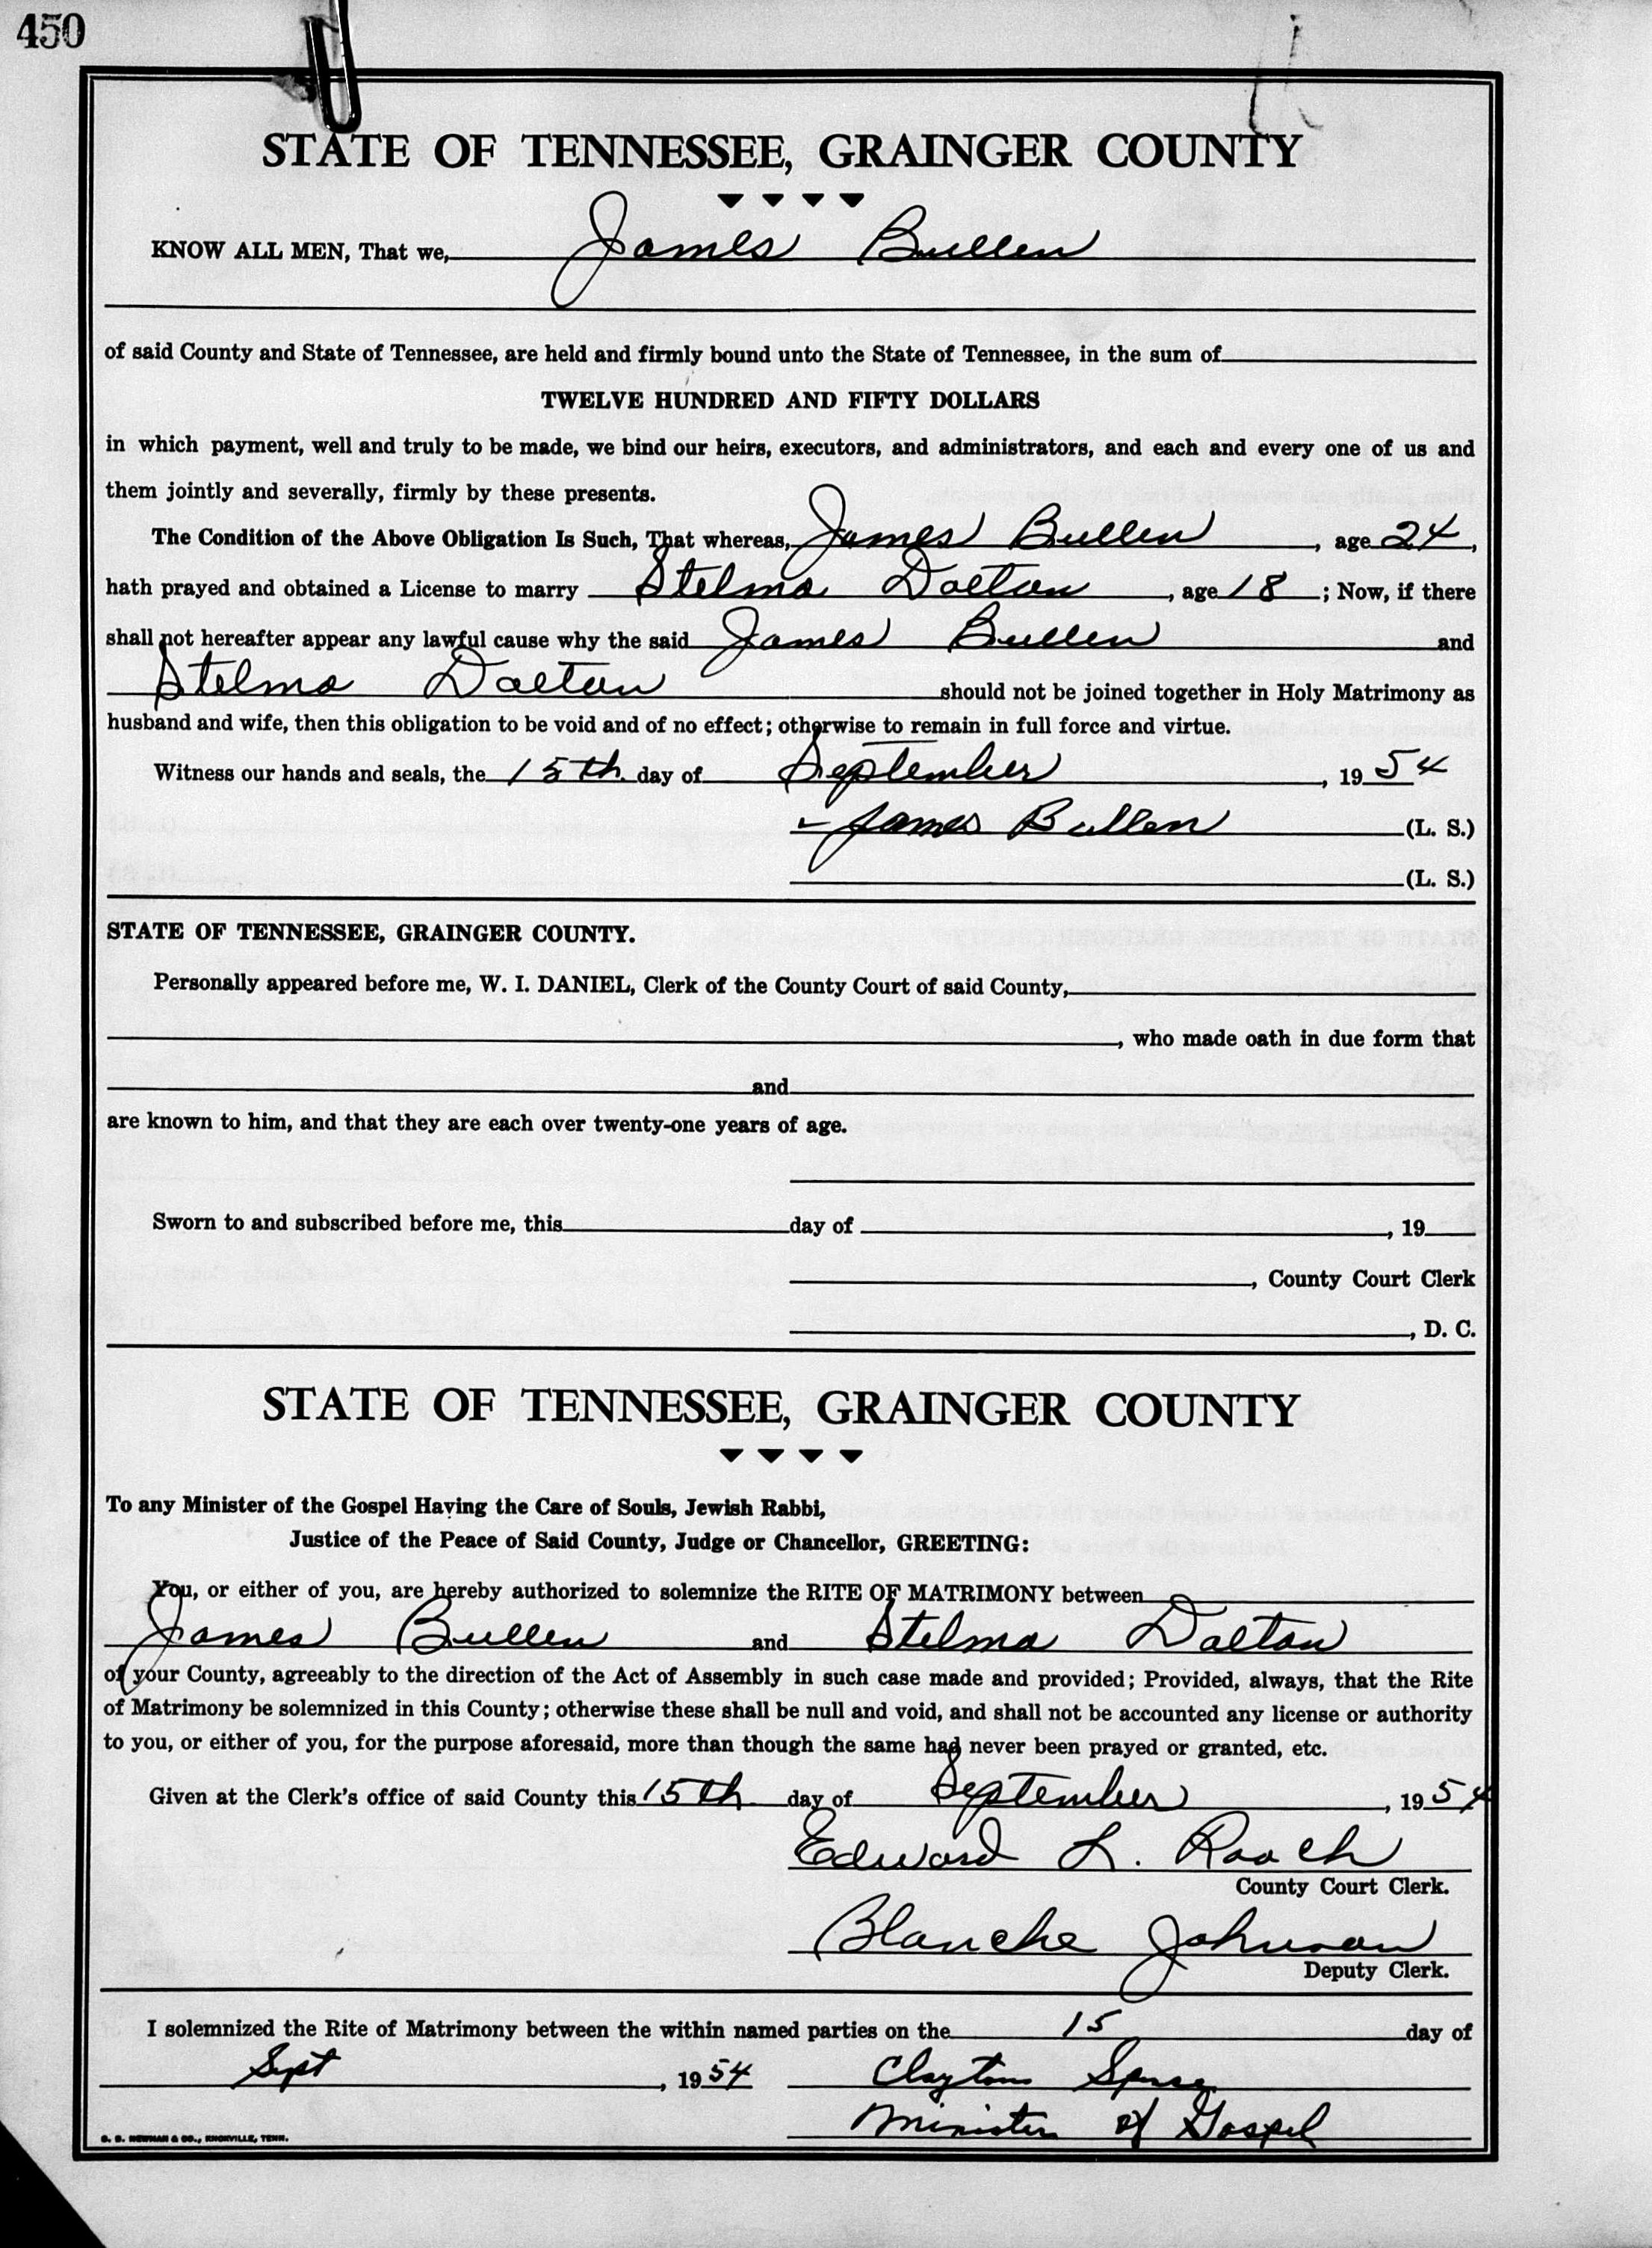 450
STATE OF TENNESSEE, GRAINGER COUNTY
KNOW ALL MEN, That we, James Bullen
of said County and State of Tennessee, are held and firmly bound unto the State of Tennessee, in the sum of
TWELVE HUNDRED AND FIFTY DOLLARS
in which payment, well and truly to be made, we bind our heirs, executors, and administrators, and each and every one of us and
them jointly and severally, firmly by these presents.
The Condition of the Above Obligation Is Such, That whereas, James Bullen, age 24,
hath prayed and obtained a License to marry Stelma Dalton, age 18; Now, if there
shall not hereafter appear any lawful cause why the said James Bullen and
Stelma Dalton should not be joined together in Holy Matrimony as
husband and wife, then this obligation to be void and of no effect; otherwise to remain in full force and virtue.
Witness our hands and seals, the 15th day of September, 1954
James Bullen (L. S.)
(L. S.)
STATE OF TENNESSEE, GRAINGER COUNTY.
Personally appeared before me, W. I. DANIEL, Clerk of the County Court of said County,
, who made oath in due form that
and
are known to him, and that they are each over twenty-one years of age.
Sworn to and subscribed before me, this day of , 19
, County Court Clerk
, D. C.
STATE OF TENNESSEE, GRAINGER COUNTY
To any Minister of the Gospel Having the Care of Souls, Jewish Rabbi,
Justice of the Peace of Said County, Judge or Chancellor, GREETING:
You, or either of you, are hereby authorized to solemnize the RITE OF MATRIMONY between
James Bullen and Stelma Dalton
of your County, agreeably to the direction of the Act of Assembly in such case made and provided; Provided, always, that the Rite
of Matrimony be solemnized in this County; otherwise these shall be null and void, and shall not be accounted any license or authority
to you, or either of you, for the purpose aforesaid, more than though the same had never been prayed or granted, etc.
Given at the Clerk's office of said County this 15th day of September, 1954
Edward L. Roach
County Court Clerk.
Blanche Johnson
Deputy Clerk.
I solemnized the Rite of Matrimony between the within named parties on the 15 day of
Sept, 1954 Clayton
Minister of Gospel
NEWMAN & CO., KNOXVILLE, TENN.